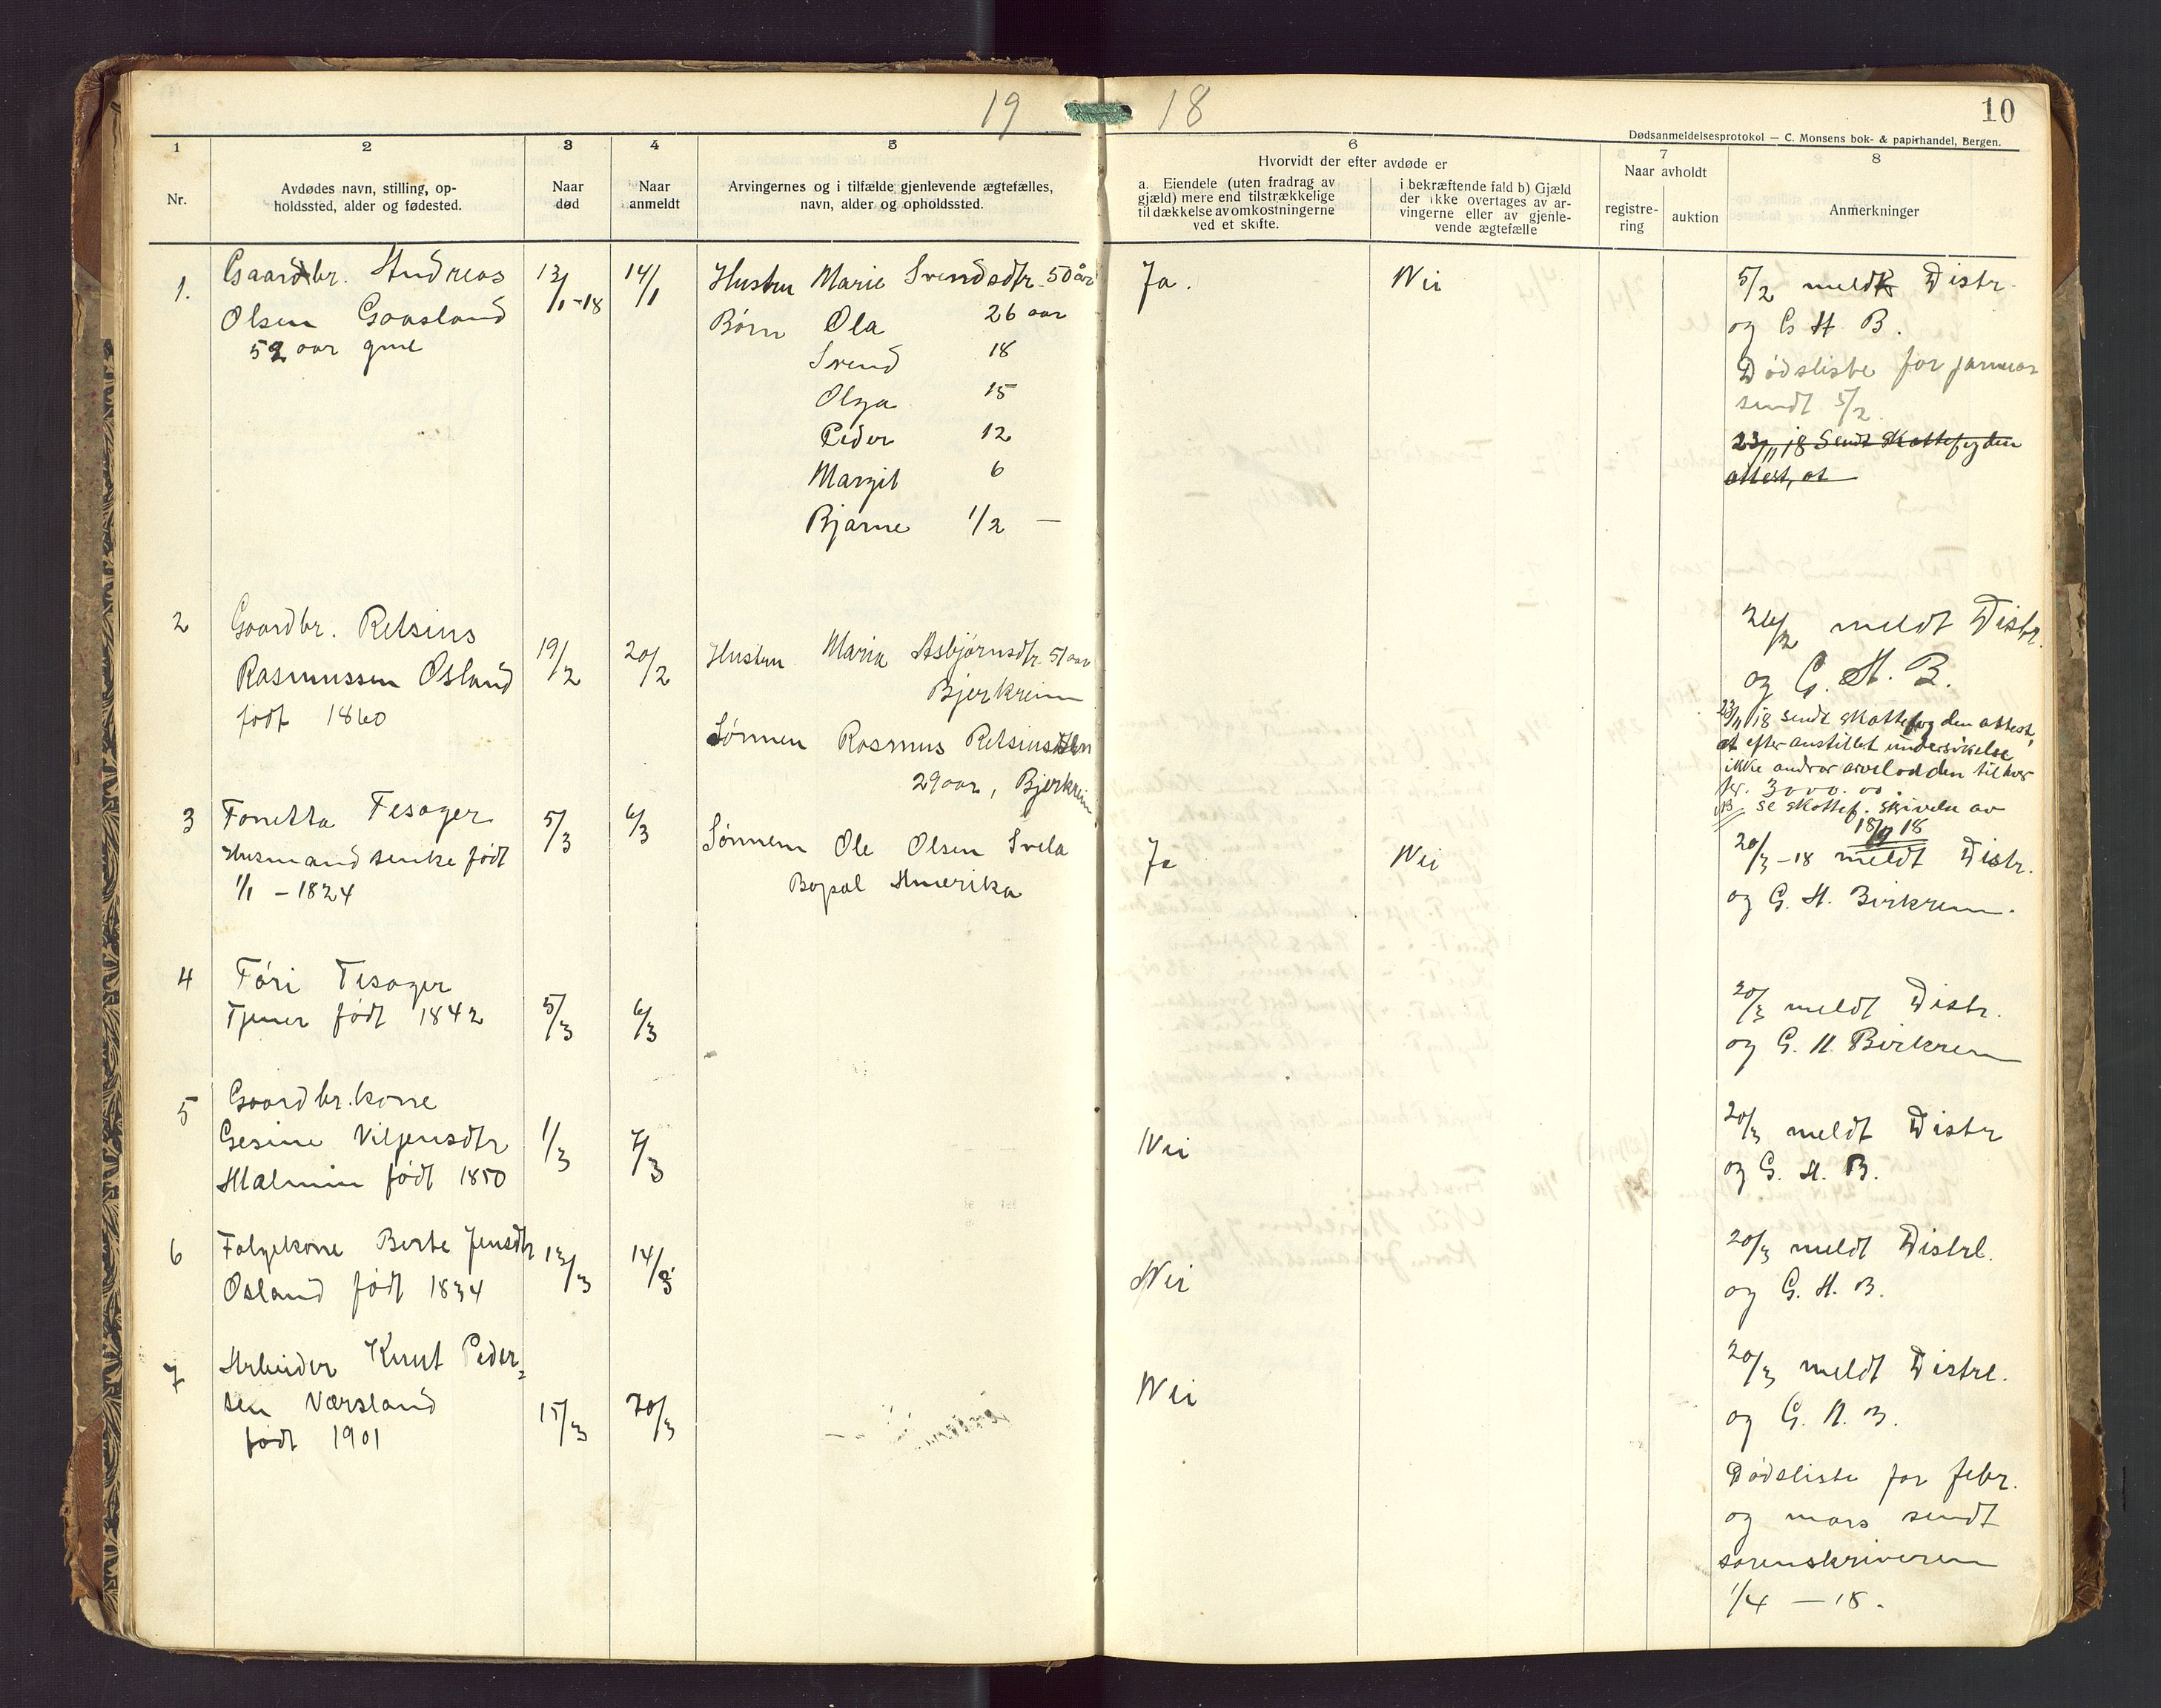 19 18
10
Dødsanmeldelsesprotokol — C. Monsens bok- & papirhandel, Bergen.
1 2 3 4 5 6 7 8
Nr.
Avdødes navn, stilling, op-
holdssted, alder og fødested.
Naar
død
Naar
anmeldt
Arvingernes og i tilfælde gjenlevende ægtefælles,
navn, alder og opholdssted.
Hvorvidt der efter avdøde er
a. Eiendele (uten fradrag av
gjæld) mere end tilstrækkelige
til dækkelse av omkostningerne
ved et skifte.
i bekræftende fald b) Gjæld
der ikke overtages av ar-
vingerne eller av gjenle-
vende ægtefælle
Naar avholdt
registre-
ring
auktion
Anmerkninger
1. Gaardbr. Andreas
Olsen Gaasland
52 aar gml
13/1-18
14/1
Hustru Marie Svendsdtr. 50 år
Børn Ola 26 aar
Svend 18
Olga 15
Peder 12
Margit 6
Bjarne 1/2 —
Ja.
Nei
5/2 meldt Distr.
og G H B.
Dødsliste for januar
sendt 5/2.
23/11 18 Sendt skattefogden
attest, at
2 Gaardbr. Retsius
Rasmussen Osland
født 1860
19/2
20/2
Hustru Maria Asbjørnsdtr. 51 aar
Bjerkreim
Sønnen Rasmus Retsius
29 aar, Bjerkreim
26/2 meldt Distr.
og G. H. B.
23/11 18 sendt skattefogden attest,
at efter anstillet undersøkelse
ikke andrar arvelodden til hver
kr. 3000.00.
NB se skattef. skrivelse av
18/11 18
3 Tonetta Tesager
Husmandsenke født
1/1 - 1824
5/3
6/3
Sønnen Ole Olsen Svela
Bopæl Amerika
Ja
Nei
20/3 -18 meldt Distr.
og G. H. Birkrem.
4 Tóri Tesager
Tjener født 1842
5/3
6/3
20/3 meldt Distr.
og G. H. Birkrem
5 Gaardbr.kone
Gesine Viljensdtr
Malmin født 1850
1/3
7/3
Nei
20/3 meldt Distr
og G. H. B.
6 Følgekone Berte Jensdtr
Osland født 1834
13/3
14/3
Nei
20/3 meldt Distrl.
og G. H. B.
7 Arbeider Knut Peder=
sen Værsland
født 1901
15/3
20/3
Nei
20/3 meldt Distrl.
og G. H. B.
Dødsliste for febr.
og mars sendt
sorenskriveren
1/4 — 18.